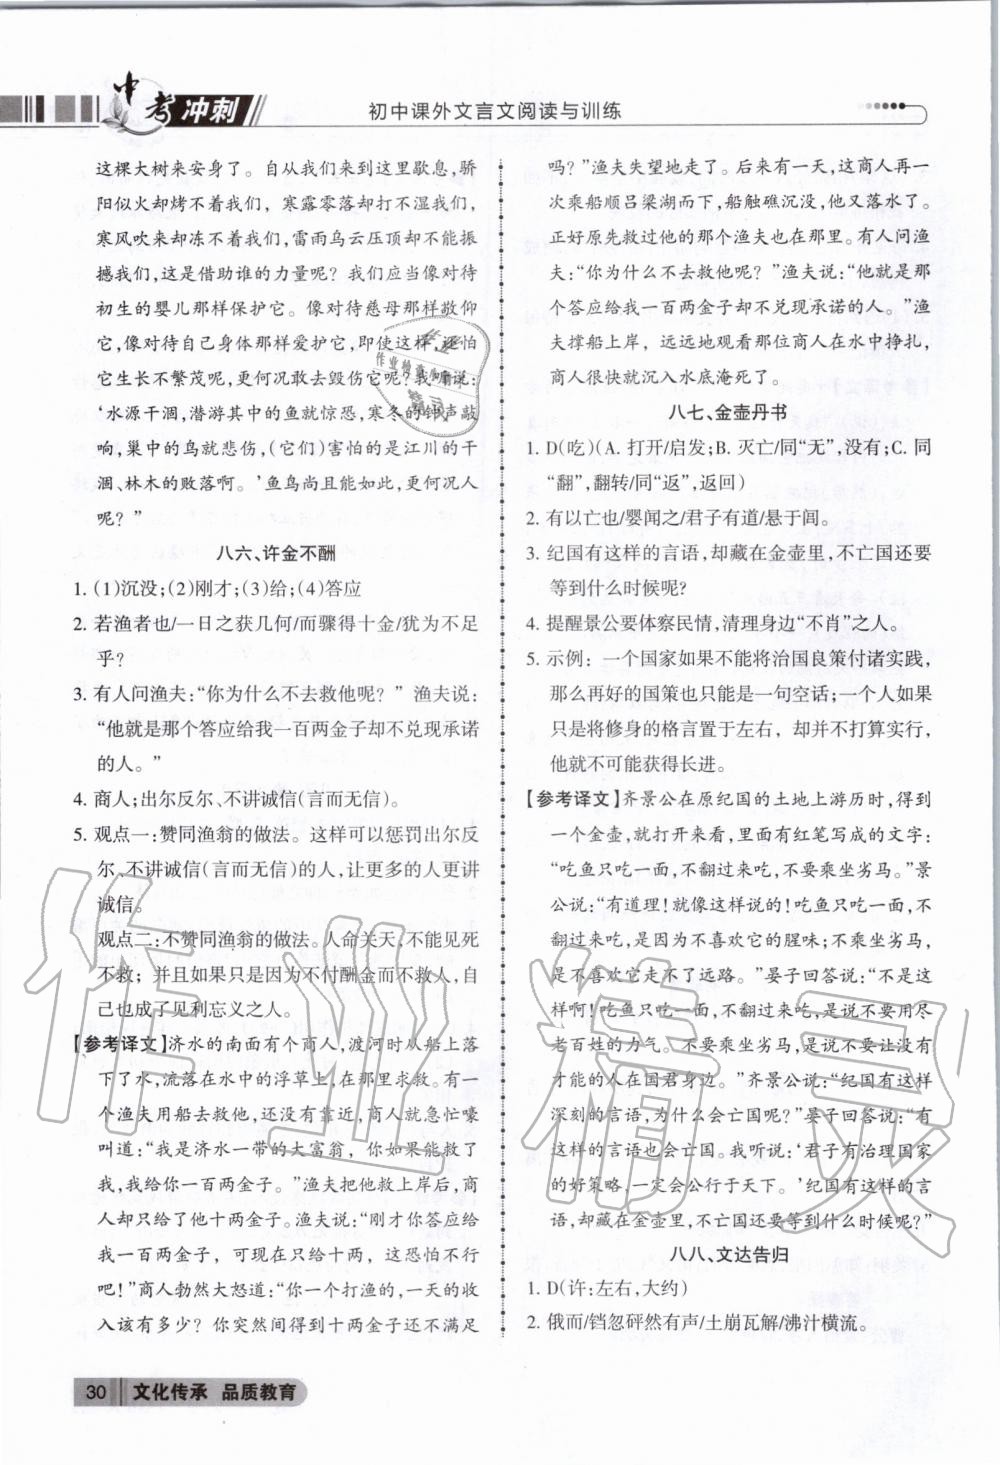 中考冲刺
初中课外文言文阅读与训练
这棵大树来安身了。自从我们来到这里歇息,骄
阳似火却烤不着我们,寒露零落却打不湿我们,
寒风吹来却冻不着我们,雷雨乌云压顶却不能振
撼我们,这是借助谁的力量呢?我们应当像对待
初生的婴儿那样保护它。像对待慈母那样敬仰
它,像对待自己身体那样爱护它,即使这样,还怕
它生长不繁茂呢,更何况忍心毁伤它呢?我常说:
‘水源干涸,潜游其中的鱼就惊恐,寒冬的钟声敲
响,巢中的鸟就悲伤,(它们)害怕的是江川的干
涸、林木的败落啊。’鱼鸟尚且能如此,更何况人
呢?”
八六、许金不酬
1. (1)沉没;(2)刚才;(3)给;(4)答应
2. 若渔者也/一日之获几何/而骤得十金/犹为不足
乎?
3. 有人问渔夫:“你为什么不去救他呢?”渔夫说:
“他就是那个答应给我一百两金子却不兑现承诺
的人。”
4. 商人;出尔反尔、不讲诚信(言而无信)。
5. 观点一:赞同渔翁的做法。这样可以惩罚出尔反
尔、不讲诚信(言而无信)的人,让更多的人更讲
诚信。
观点二:不赞同渔翁的做法。人命关天,不能见死
不救;并且如果只是因为不付酬金而不救人,自
己也成了见利忘义之人。
【参考译文】济水的南面有个商人,渡河时从船上落
下了水,流落在水中的浮草上,在那里求救。有一
个渔夫用船去救他,还没有靠近,商人就急忙嚎
叫道:“我是济水一带的大富翁,你如果能救了
我,我给你一百两金子。”渔夫把他救上岸后,商
人却只给了他十两金子。渔夫说:“刚才你答应给
我一百两金子,可现在只给十两,这恐怕不行
吧!”商人勃然大怒道:“你一个打渔的,一天的收
入该有多少?你突然间得到十两金子还不满足
吗?”渔夫失望地走了。后来有一天,这商人再一
次乘船顺吕梁湖而下,船触礁沉没,他又落水了。
正好原先救过他的那个渔夫也在那里。有人问渔
夫:“你为什么不去救他呢?”渔夫说:“他就是那
个答应给我一百两金子却不兑现承诺的人。”渔
夫撑船上岸,远远地观看那位商人在水中挣扎,
商人很快就沉入水底淹死了。
八七、金壶丹书
1. D(吃)(A. 打开/启发;B. 灭亡/同“无”,没有;C. 同
“翻”,翻转/同“返”,返回)
2. 有以亡也/婴闻之/君子有道/悬于闾。
3. 纪国有这样的言语,却藏在金壶里,不亡国还要
等到什么时候呢?
4. 提醒景公要体察民情,清理身边“不肖”之人。
5. 示例:一个国家如果不能将治国良策付诸实践,
那么再好的国策也只能是一句空话;一个人如果
只是将修身的格言置于左右,却并不打算实行,
他不可能获得长进。
【参考译文】齐景公在原纪国的土地上游历时,得到
一个金壶,就打开来看,里面有红笔写成的文字:
“吃鱼只吃一面,不翻过来吃,不要乘坐劣马。”景
公说:“有道理!就像这样说的!吃鱼只吃一面,不
翻过来吃,是因为不喜欢它的腥味;不乘坐劣马,
是不喜欢它走不了远路。”晏子回答说:“不是这
样啊!吃鱼只吃一面,不翻过来,是说不要用尽
老百姓的力气!不要乘坐劣马,是说不要让没有
才能的人在国君身边。”齐景公说:“纪国有这样
深刻的言语,为什么会亡国呢?”晏子回答说:“有
这样的言语也会亡国。我听说:‘君子有治理国家
的好策略,一定会公行于天下。’纪国有这样的言
语,却藏在金壶里,不亡国还要等到什么时候呢?”
八八、文达告归
1. D(许:左右,大约)
2. 俄而/铛忽砰然有声/土崩瓦解/沸汁横流。
30 文化传承 品质教育
作业精灵